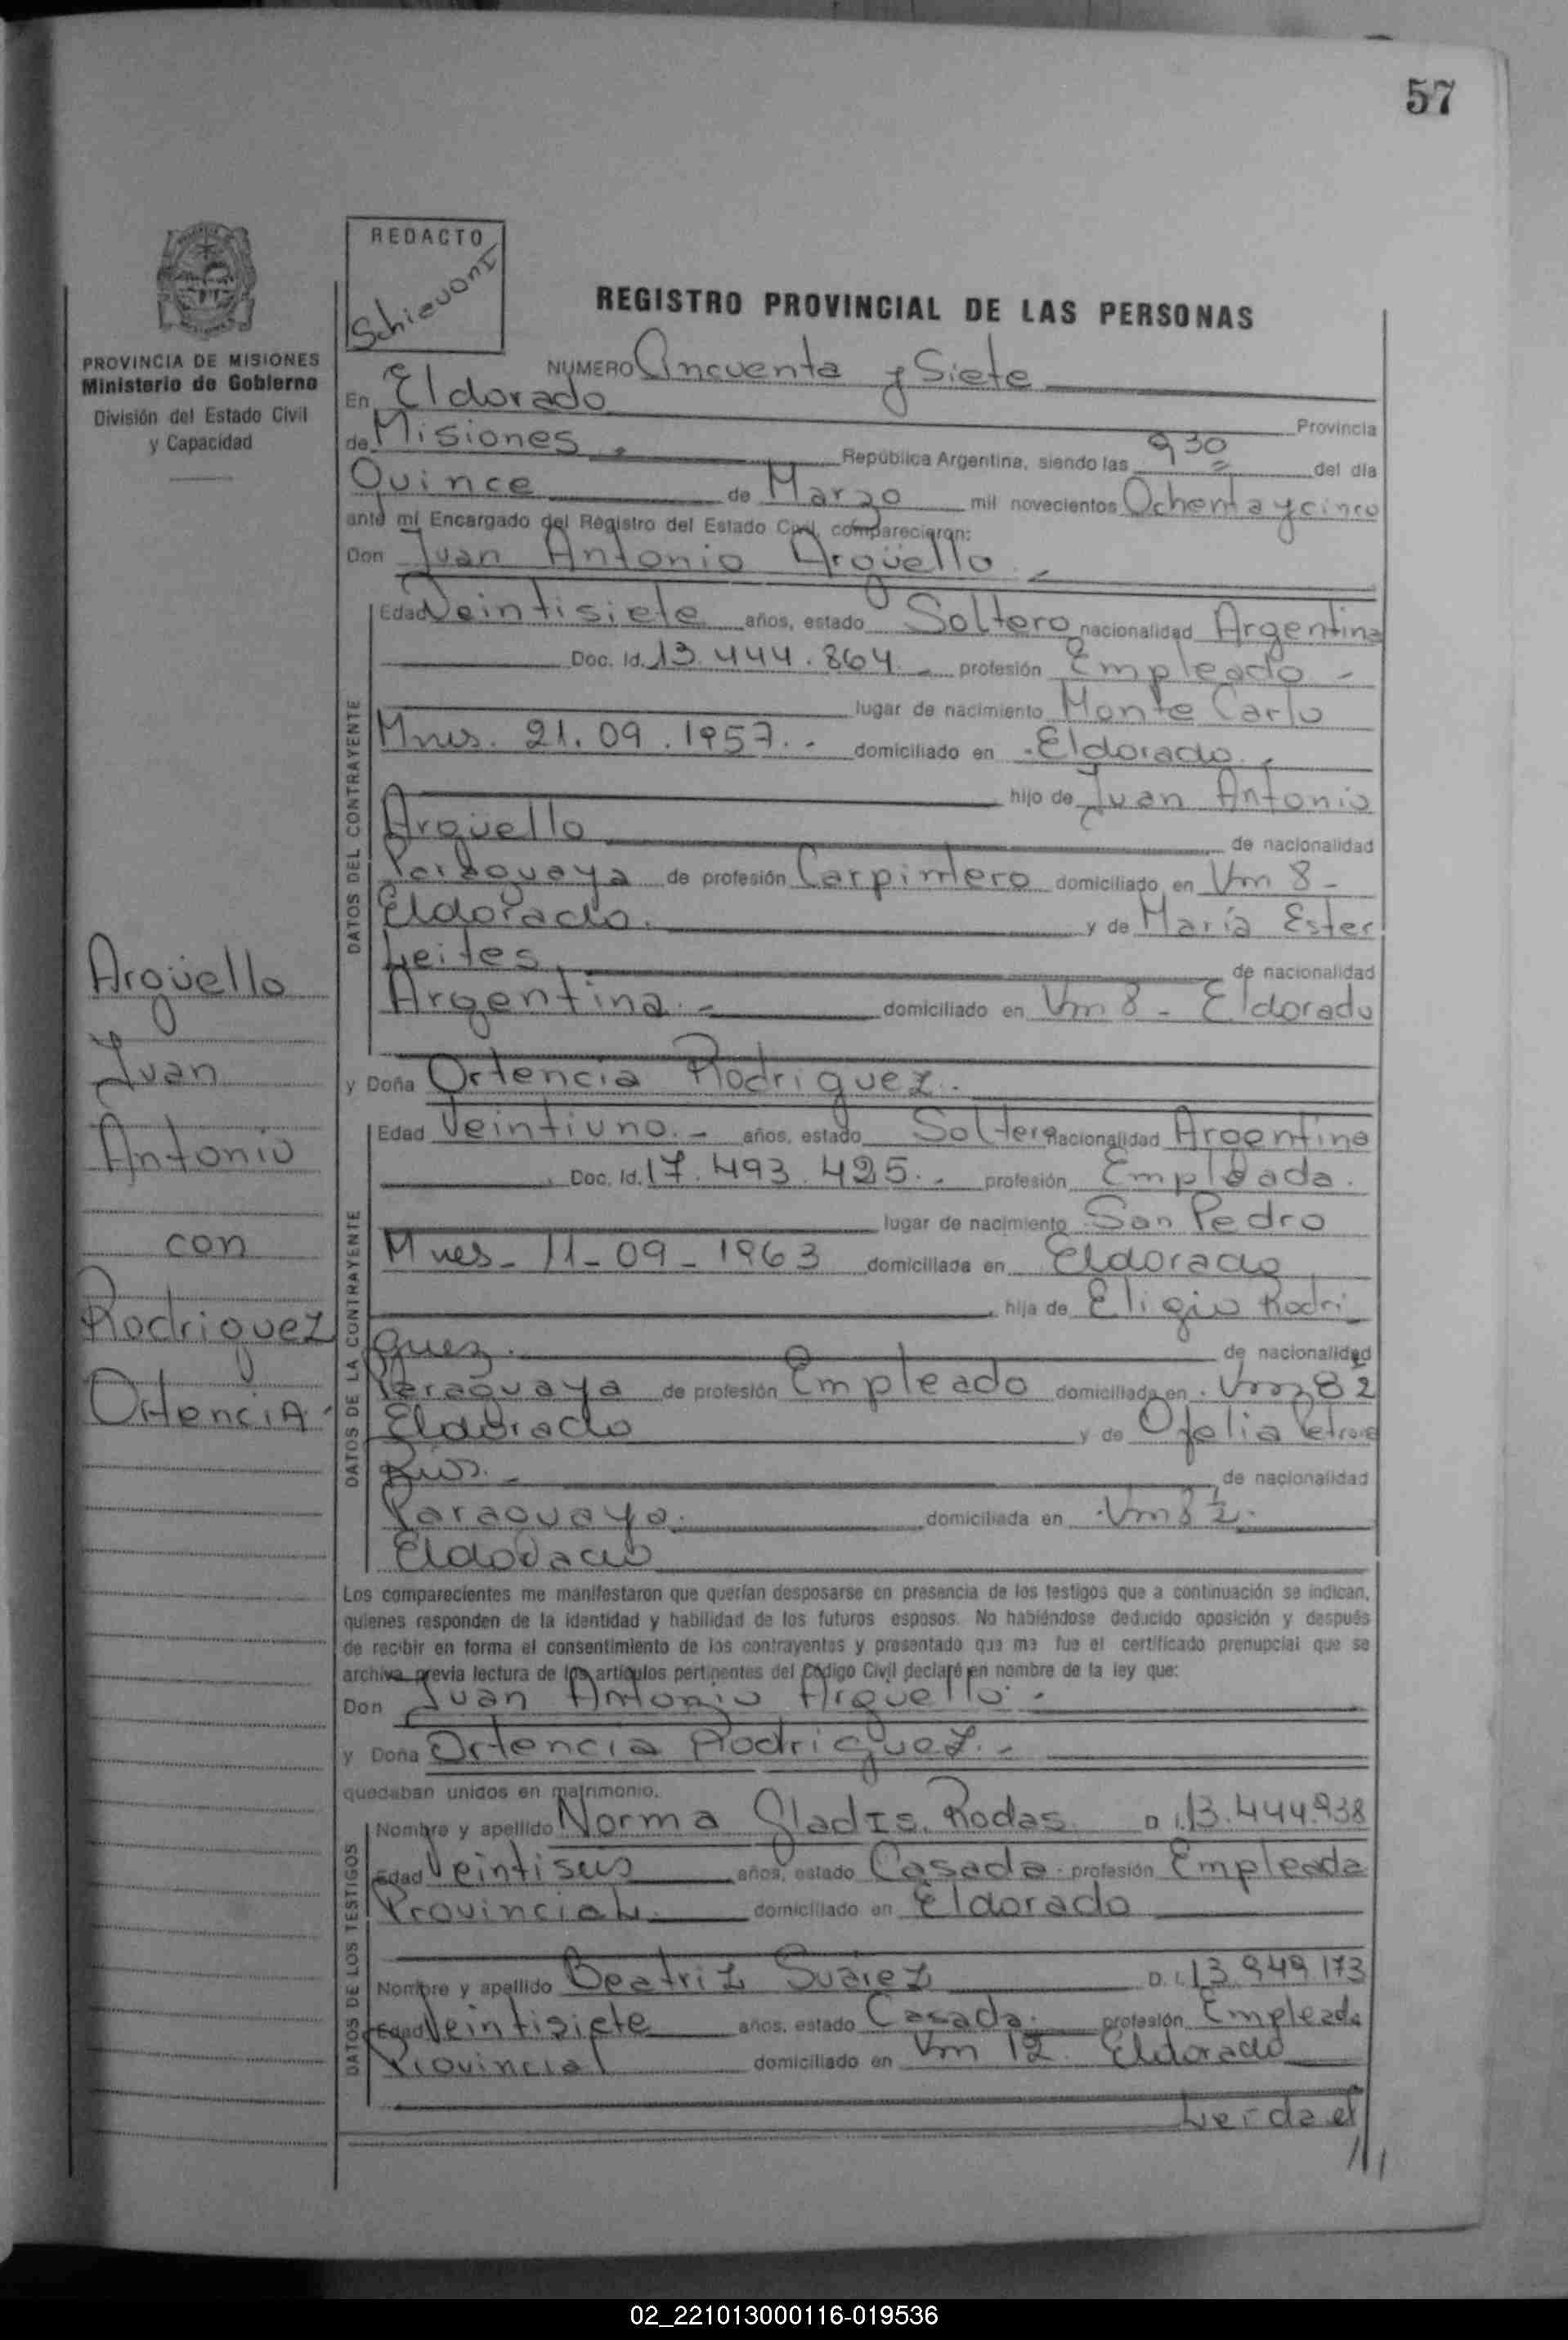 57
REDACTO
Schievoni
REGISTRO PROVINCIAL DE LAS PERSONAS
PROVINCIA DE MISIONES
Ministerio de Gobierno
División del Estado Civil
y Capacidad
NUMERO Cincuenta y Siete
En Eldorado Provincia
de Misiones República Argentina, siendo las 9 30 del día
Quince de Marzo mil novecientos Ochenta y cinco
ante mí Encargado del Registro del Estado Civil, comparecieron:
Don Juan Antonio Argüello
DATOS DEL CONTRAYENTE
Edad Veintisiete años, estado Soltero nacionalidad Argentina
Doc. Id. 13.444.864. profesión Empleado
lugar de nacimiento Monte Carlo
Mnes. 21.09.1957. domiciliado en Eldorado.
hijo de Juan Antonio
Argüello de nacionalidad
Paraguaya de profesión Carpintero domiciliado en Vm 8 -
Eldorado. y de María Ester
Leites de nacionalidad
Argentina. domiciliado en Vm 8 - Eldorado
y Doña Ortencia Rodriguez.
DATOS DE LA CONTRAYENTE
Edad Veintiuno. años, estado Soltera nacionalidad Argentina
Doc. Id. 17.493.425. profesión Empleada.
lugar de nacimiento San Pedro
Mnes - 11-09-1963 domiciliada en Eldorado
hija de Eligio Rodri
guez. de nacionalidad
Paraguaya de profesión Empleado domiciliada en Vm
Eldorado y de Ofelia
Rios. de nacionalidad
Paraguaya. domiciliada en Vm 8 ½.
Eldorado
Los comparecientes me manifestaron que querían desposarse en presencia de los testigos que a continuación se indican,
quienes responden de la identidad y habilidad de los futuros esposos. No habiéndose deducido oposición y después
de recibir en forma el consentimiento de los contrayentes y presentado que me fue el certificado prenupcial que se
archiva previa lectura de los artículos pertinentes del Código Civil declaré en nombre de la ley que:
Don Juan Antonio Argüello.
y Doña Ortencia Rodriguez.
quedaban unidos en matrimonio.
DATOS DE LOS TESTIGOS
Nombre y apellido Norma Gladis Rodas D.I. 13.444.938
Edad Veintiseis años, estado Casada profesión Empleada
Provincial. domiciliado en Eldorado
Nombre y apellido Beatriz Suárez D.I. 13.949.173
Edad Veintisiete años, estado Casada. profesión Empleada
Provincial domiciliado en Vm 12. Eldorado
Leida el
///
Argüello
Juan
Antonio
con
Rodriguez
Ortencia
02_221013000116-019536